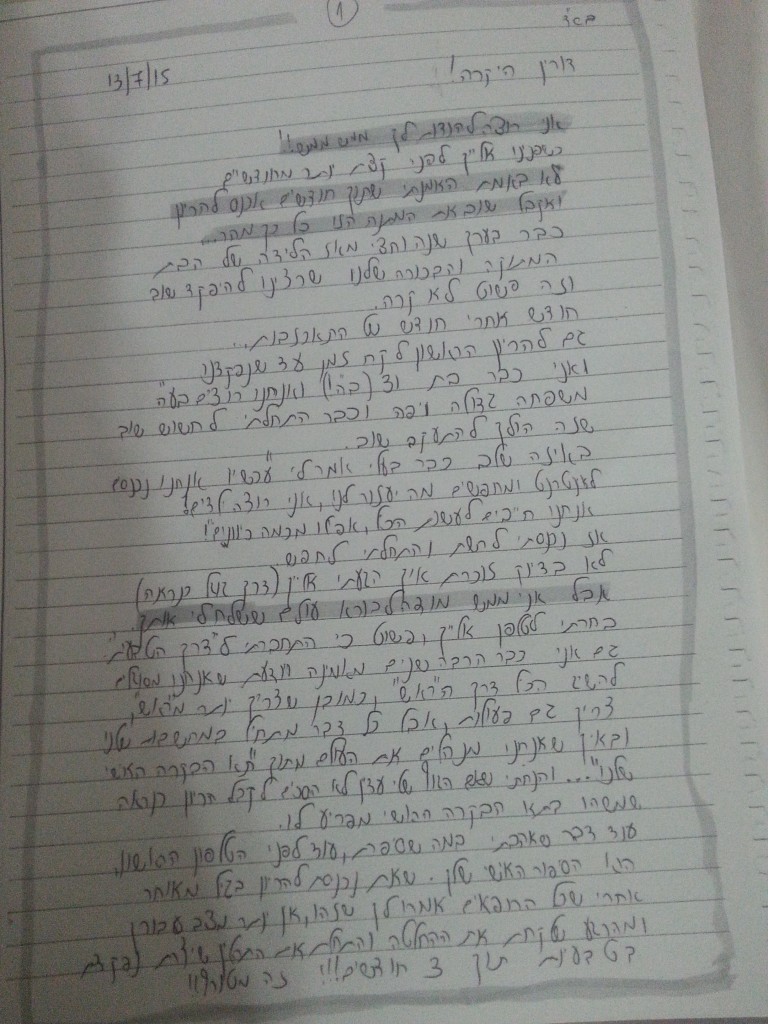 1
בס"ד
דורין היקרה! 13/7/15
אני רוצה להודות לך ממש ממש!!
כשפנינו אליך לפני קצת יותר מחודשיים
לא באמת האמנתי שתוך חודשים אכנס להריון
ואקבל שוב את המתנה הזו כל כך מהר...
כבר בערך שנה וחצי מאז הלידה של הבת
המתוקה והבכורה שלנו שרצינו להיפקד שוב
וזה פשוט לא קרה.
חודש אחרי חודש של התאכזבות...
גם להריון הראשון לקח זמן עד שנפקדנו
ואני כבר בת (ב"ה!) ואנחנו רוצים בע"ה
משפחה גדולה ויפה וכבר התחלתי לחשוש שוב
שזה הולך להתעכב שוב.
באיזה שלב כבר בעלי אמר לי "עכשיו אנחנו נכנסים
לאינטרנט ומחפשים מה יעזור לנו, אני רוצה ילדים!
אנחנו חייבים לעשות הכל, אפילו מכמה כיוונים"!
אז נכנסתי לרשת והתחלתי לחפש
לא בדיוק זוכרת איך הגעתי אליך (דרך גוגל כנראה)
אבל אני ממש מודה לבורא עולם ששלח לי אותך.
בחרתי לטלפן אליך, פשוט כי התחברתי ל"דרך הטבעית"
גם אני כבר הרבה שנים מאמינה ויודעת שאנחנו מסוגלים
להשיג הכל דרך ה"ראש", כמובן שצריך יותר מ"ראש",
צריך גם פעולות, אבל כל דבר מתחיל במחשבות שלנו
ובאיך שאנחנו מנהלים את העולם מתוך "תא הבקרה האישי
שלנו"... והנחתי שאם הגוף שלי עדיין לא הסכים לקבל הריון כנראה
שמשהו בתא הבקרה הראשי מפריע לו.
עוד דבר שאהבתי במה שסיפרת, עוד לפני הטלפון הראשון,
הוא הסיפור האישי שלך. שאת נכנסת להריון בגיל מאוחר
אחרי שכל הרופאים אמרו לך שזהו, אין יותר מצב עבורך
ומהרגע שלקחת את ההחלטה והתחלת את התהליך שיצרת נפקדת
בטבעיות תוך 3 חודשים!!! זה מטורף!!